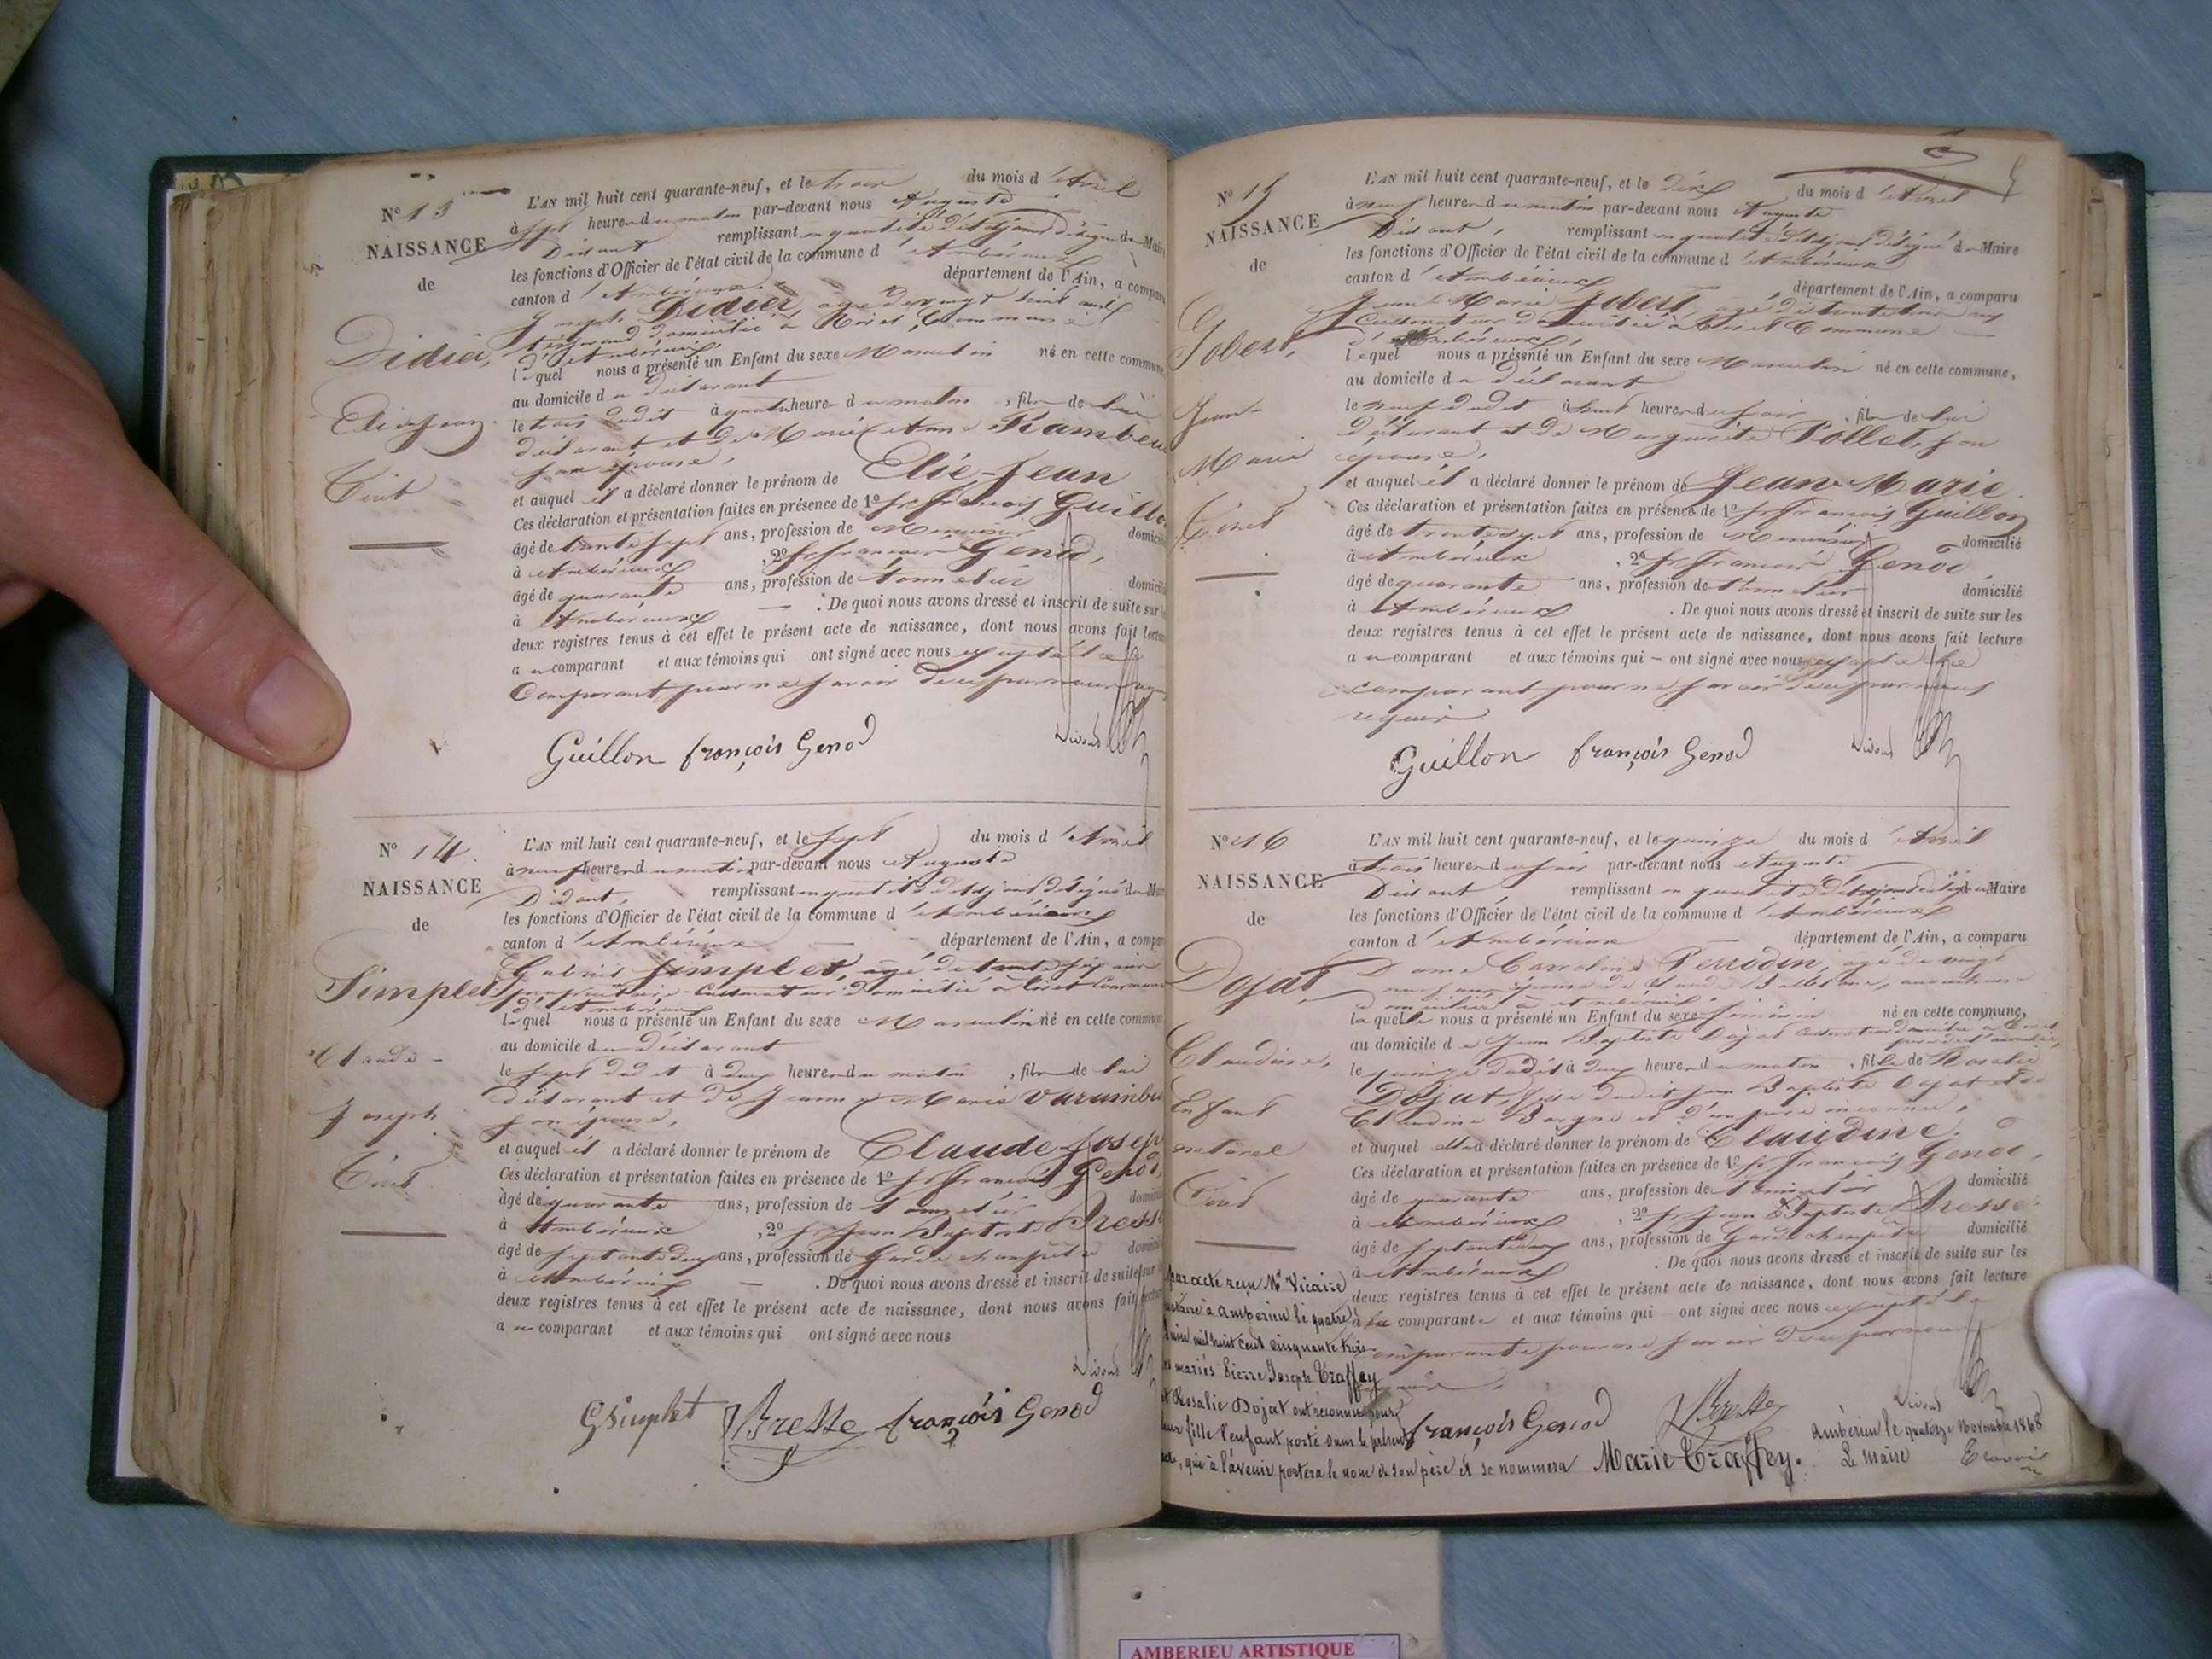 N° 13
NAISSANCE
de
Didier,
Elie Jean
L'AN mil huit cent quarante-neuf, et le trois du mois d'Avril
à sept heures du matin par-devant nous Auguste
Didout remplissant en qualité d'adjoint délégué du Maire
les fonctions d'Officier de l'état civil de la commune d'Ambérieux
canton d'Ambérieux département de l'Ain, a comparu
Joseph Didier, agé de vingt huit ans
tisserand domicilié à commune
d'Ambérieux,
lequel nous a présenté un Enfant du sexe Masculin né en cette commune
au domicile du déclarant
le trois dudit à quatre heures du matin, fils de lui
déclarant et de Marie
son épouse,
et auquel il a déclaré donner le prénom de Elie-Jean
Ces déclaration et présentation faites en présence de 1° sr François Guillon
âgé de trente sept ans, profession de Menuisier domicilié
à Ambérieux, 2° sr François Genod,
âgé de quarante ans, profession de tonnelier domicilié
à Ambérieux. De quoi nous avons dressé et inscrit de suite sur
deux registres tenus à cet effet le présent acte de naissance, dont nous avons fait lecture
au comparant et aux témoins qui ont signé avec nous excepté le
Comparant pour ne savoir de ce par nous
Guillon françois Genod
N° 14
NAISSANCE
de
Simplet
Claude
Joseph
L'AN mil huit cent quarante-neuf, et le sept du mois d'Avril
à neuf heures du matin par-devant nous Auguste
Didout, remplissant en qualité d'adjoint délégué du Maire
les fonctions d'Officier de l'état civil de la commune d'Ambérieux
canton d'Ambérieux département de l'Ain, a comparu
Gabriel Simplet, agé de trente six ans
propriétaire cultivateur domicilié commune
d'Ambérieux
lequel nous a présenté un Enfant du sexe Masculin né en cette commune
au domicile du déclarant
le sept dudit à deux heures du matin, fils de lui
déclarant et de Jeanne Marie
son épouse,
et auquel il a déclaré donner le prénom de Claude Joseph
Ces déclaration et présentation faites en présence de 1° sr François Genod,
âgé de quarante ans, profession de tonnelier domicilié
à Ambérieux, 2° sr Jean Baptiste Bresse
âgé de septante deux ans, profession de Garde champêtre domicilié
à Ambérieux. De quoi nous avons dressé et inscrit de suite sur
deux registres tenus à cet effet le présent acte de naissance, dont nous avons fait lecture
au comparant et aux témoins qui ont signé avec nous
GSimplet Bresse françois Genod
N° 15
NAISSANCE
de
Jobert,
Jean
Marie
L'AN mil huit cent quarante-neuf, et le dix du mois d'Avril
à neuf heures du matin par-devant nous Auguste
Didout, remplissant en qualité d'adjoint délégué du Maire
les fonctions d'Officier de l'état civil de la commune d'Ambérieux
canton d'Ambérieux département de l'Ain, a comparu
Jean Marie Jobert, agé de trente trois ans
Cultivateur domicilié commune
d'Ambérieux,
lequel nous a présenté un Enfant du sexe Masculin né en cette commune,
au domicile du déclarant
le neuf dudit à huit heures du soir, fils de lui
déclarant et de Marguerite Pollet, son
épouse,
et auquel il a déclaré donner le prénom de Jean Marie.
Ces déclaration et présentation faites en présence de 1° sr François Guillon
âgé de trente sept ans, profession de Menuisier domicilié
à Ambérieux, 2° sr François Genod,
âgé de quarante ans, profession de tonnelier domicilié
à Ambérieux. De quoi nous avons dressé et inscrit de suite sur les
deux registres tenus à cet effet le présent acte de naissance, dont nous avons fait lecture
au comparant et aux témoins qui ont signé avec nous excepté le
comparant pour ne savoir de ce par nous
requis
Guillon françois Genod
N° 16
NAISSANCE
de
Dojat
Claudine,
Enfant
naturel
L'AN mil huit cent quarante-neuf, et le quinze du mois d'Avril
à trois heures du soir par-devant nous Auguste
Didout, remplissant en qualité d'adjoint délégué du Maire
les fonctions d'Officier de l'état civil de la commune d'Ambérieux
canton d'Ambérieux département de l'Ain, a comparu
Dame Caroline Perrodin, agé de vingt
neuf ans, épouse de
domiciliée à Ambérieux
laquelle nous a présenté un Enfant du sexe féminin né en cette commune,
au domicile de Jean Baptiste Dojat cultivateur
le quinze dudit à deux heures du matin, fille de Rosalie
Dojat, fille dudit Jean Baptiste Dojat et de
Claudine et d'un père inconnu,
et auquel elle a déclaré donner le prénom de Claudine.
Ces déclaration et présentation faites en présence de 1° sr François Genod,
âgé de quarante ans, profession de tonnelier domicilié
à Ambérieux, 2° sr Jean Baptiste Bresse
âgé de septante deux ans, profession de Garde champêtre domicilié
à Ambérieux. De quoi nous avons dressé et inscrit de suite sur les
deux registres tenus à cet effet le présent acte de naissance, dont nous avons fait lecture
à la comparante et aux témoins qui ont signé avec nous excepté la
comparante pour ne savoir de ce par nous
françois Genod Bresse
par acte reçu Me Vicaire
notaire à Ambérieu le quatre
Juin mil huit cent cinquante trois
les mariés Pierre Joseph Traffey
et Rosalie Dojat ont reconnu pour
leur fille l'enfant porté dans le présent
acte, qui à l'avenir portera le nom de son père et se nommera Marie Traffey.
Ambérieu le quatorze Novembre 1868
Le Maire
AMBERIEU ARTISTIQUE